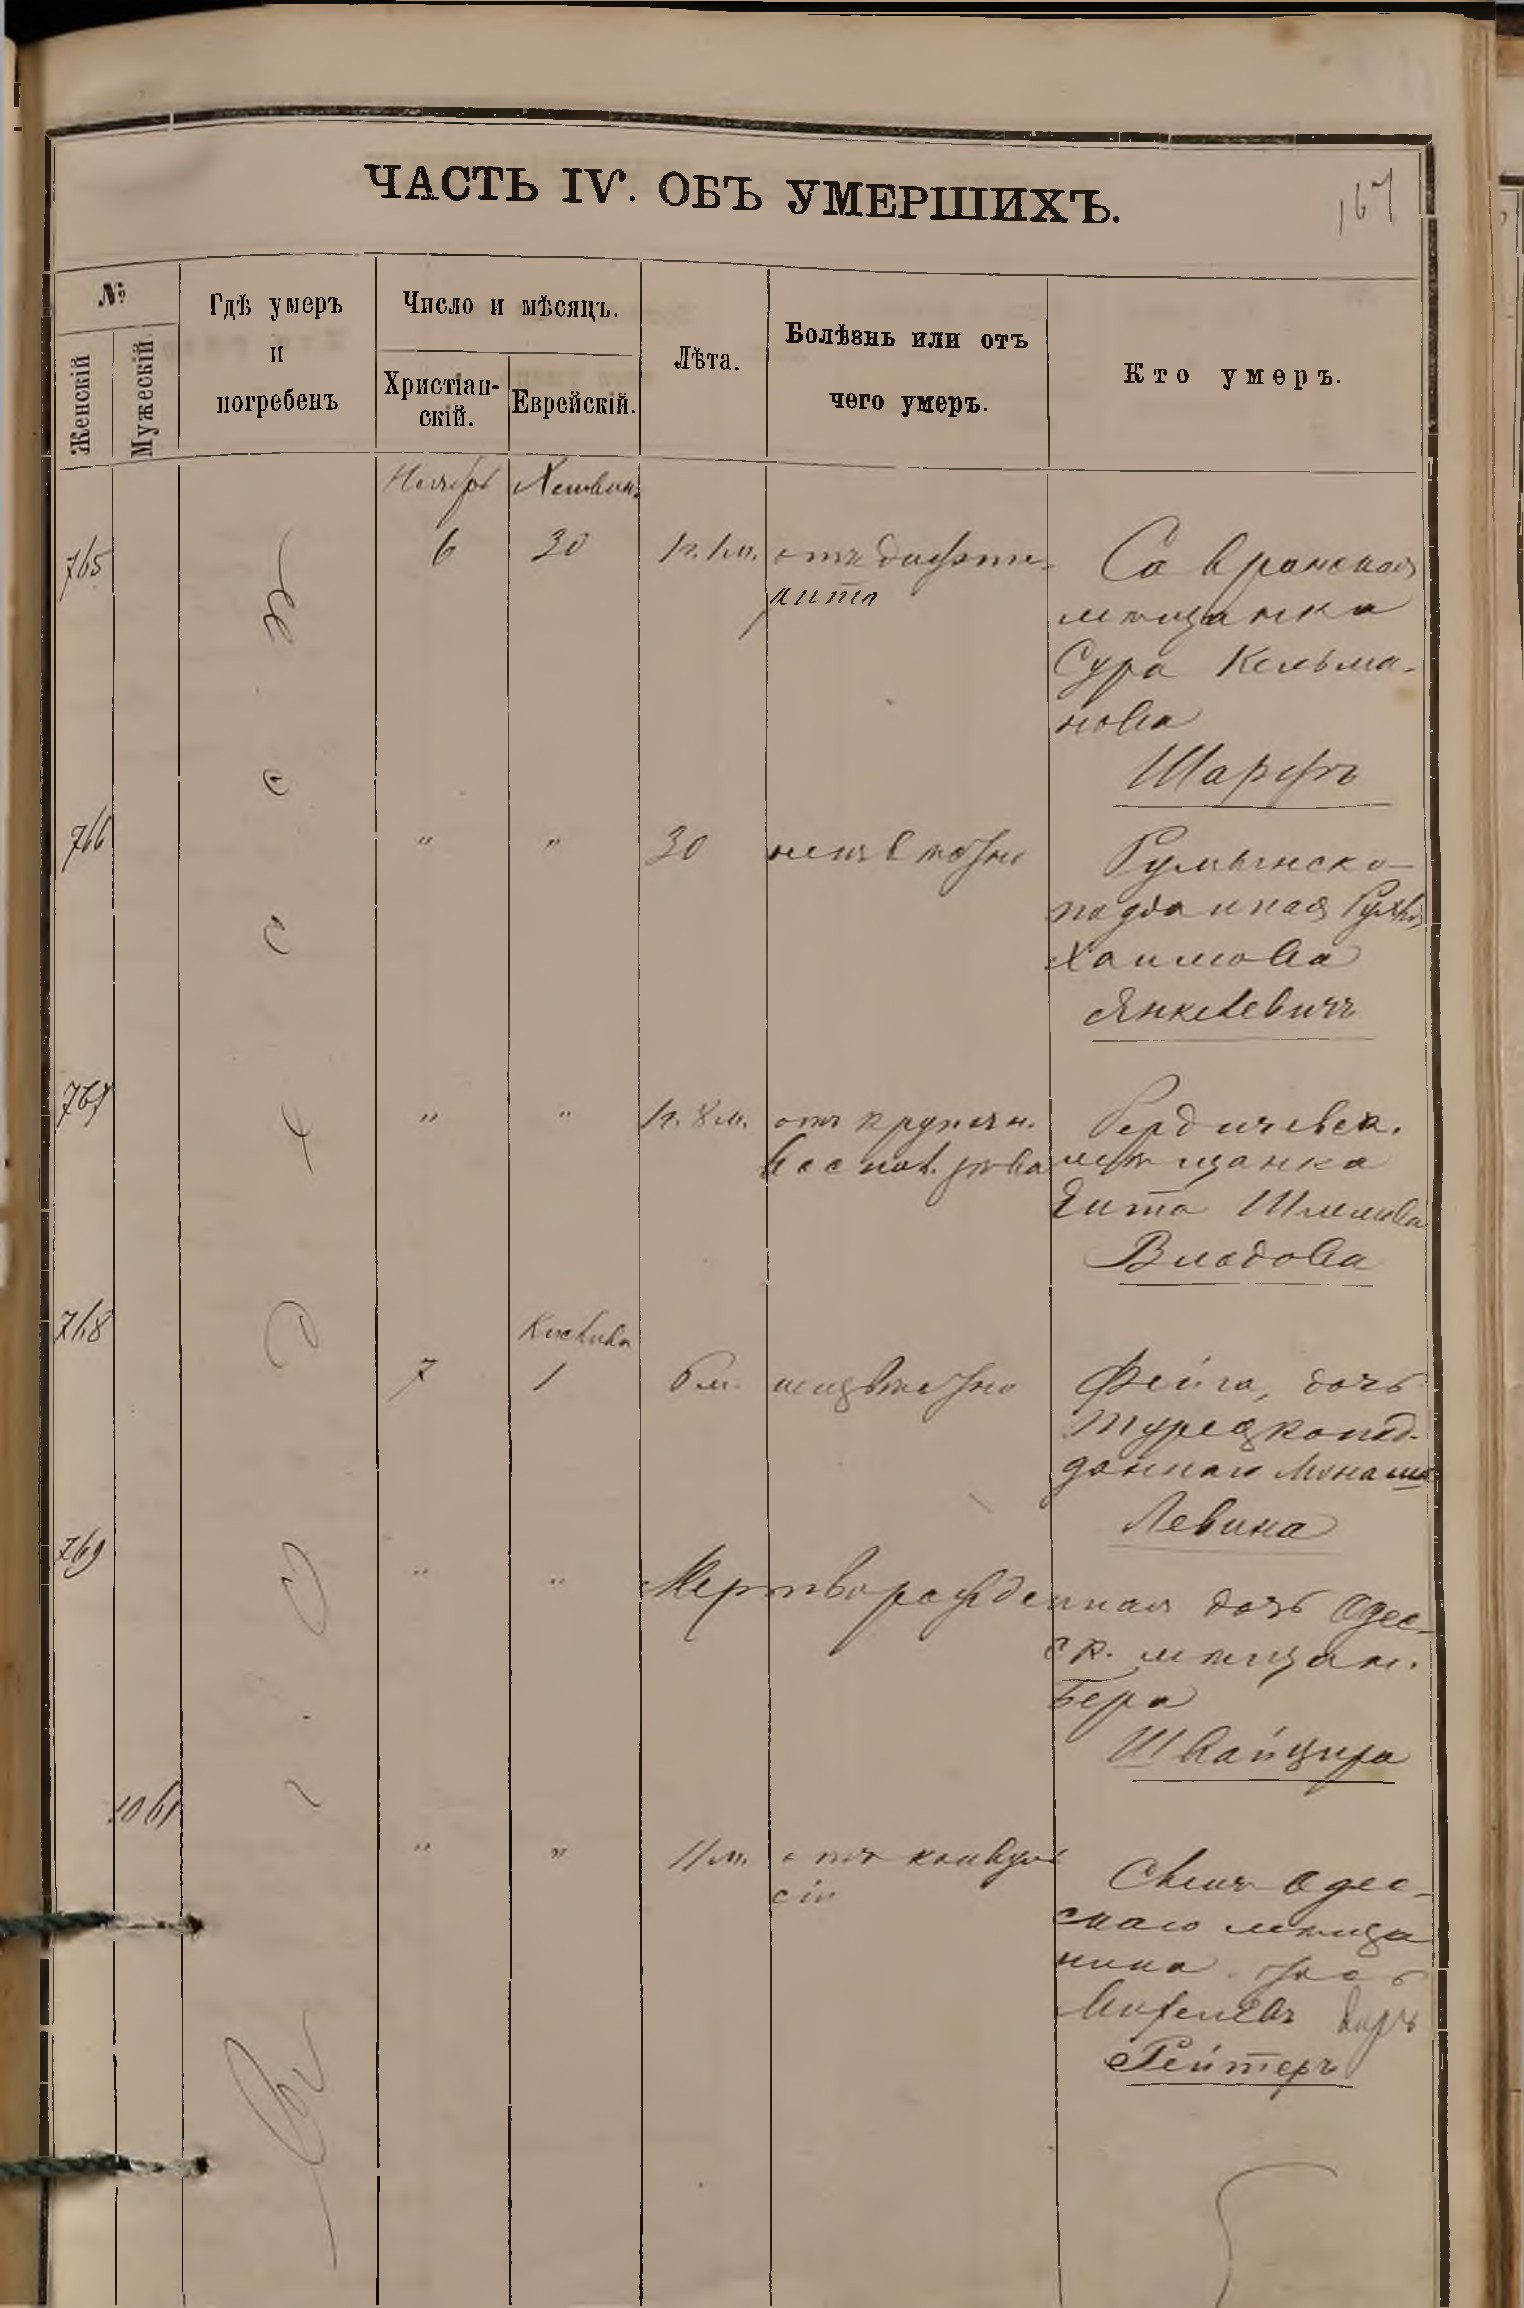 ЧАСТЬ IV. ОБЪ УМЕРШИХЪ.
167
№
Женскій
Мужескій
Гдѣ умеръ
и
погребенъ
Число и мѣсяцъ.
Христіан-
скій.
Еврейскій.
Лѣта.
Болѣзнь или отъ
чего умеръ.
Кто умеръ.
Ноябрь Хешван.
765 6 30 1г. 1м. отъ дифте-
рита
Савранская
мѣщанка
Сура Кельма-
нова
Шарфъ
766 " " 30 неизвѣстно
Румынско-
подданная
Хаимова
Янкелевичъ
767 " " 1г. 8м. отъ крупозн.
воспов.
Бердичевск.
мѣщанка
Гита Шмилева
Владова
768 Кислива
7 1 6м. неизвѣстно
Фейга, дочь
турецкопод-
даннаго Монаша
Левина
769 " " Мертворожденная дочь Одес-
ск. мѣщан.
Бера
Швайцера
1061 " " 11м. отъ конвуль
сіи
Сынъ Одес-
скаго мѣща
нина
Рейтеръ